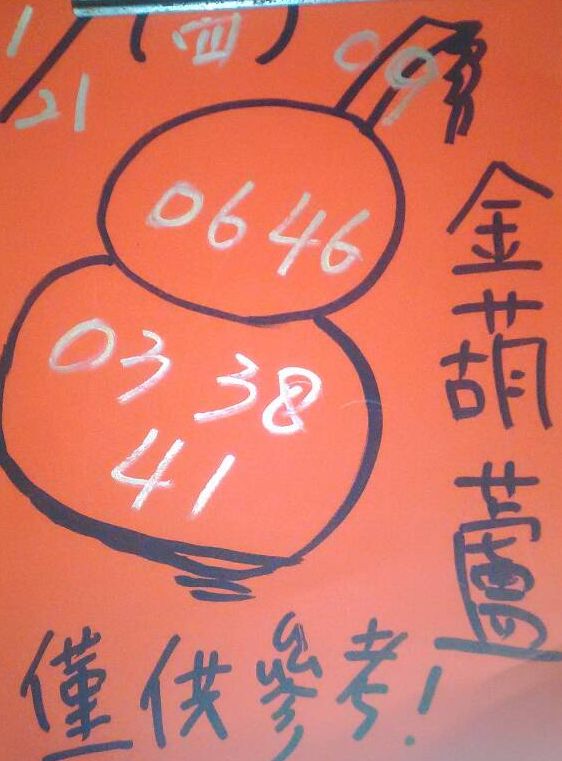 1/21 (四)
09
06 46
03 38
41
金葫蘆
僅供參考!